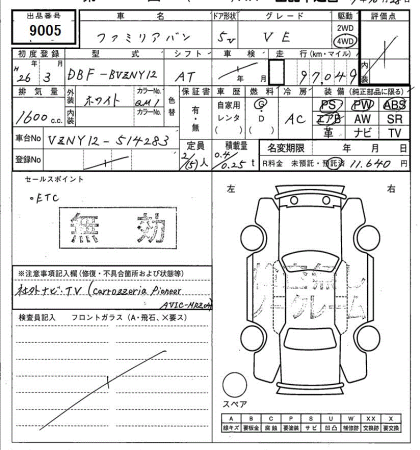 出品番号 車名 ドア形状 グレード 駆動 評価点
9005 ファミリアバン 5v VE 2WD 4WD
初度登録 型式 シフト 車検 走行(km・マイル)
H26 3 DBF-BVZNY12 AT 年 月 97,049
排気量 外装 カラーNo. 色替 保証書 車歴 燃料 冷房 装備(純正部品に限る)
1600 c.c. ホワイト QM1 有・無 自家用 レンタ ( ) G・D ( ) AC PS PW ABS
内装 カラーNo. エアB AW SR
革 ナビ TV
車台No VZNY12-514283 定員 積載量 名変期限 年 月 日
登録No 2/(5)人 0.4/0.25t R料金 未預託・預託済 11,640円
セールスポイント 左 右
・ETC
無効
※注意事項記入欄(修復・不具合箇所および状態等)
社外ナビTV(carrozzeria Pioneer
検査員記入 フロントガラス(A・飛石、×要ス)
ノークレーム
スペア
A B C P S U W X XX
線キズ 要板金 腐蝕 要塗装 サビ 凹凸 補修跡 交換跡 要交換